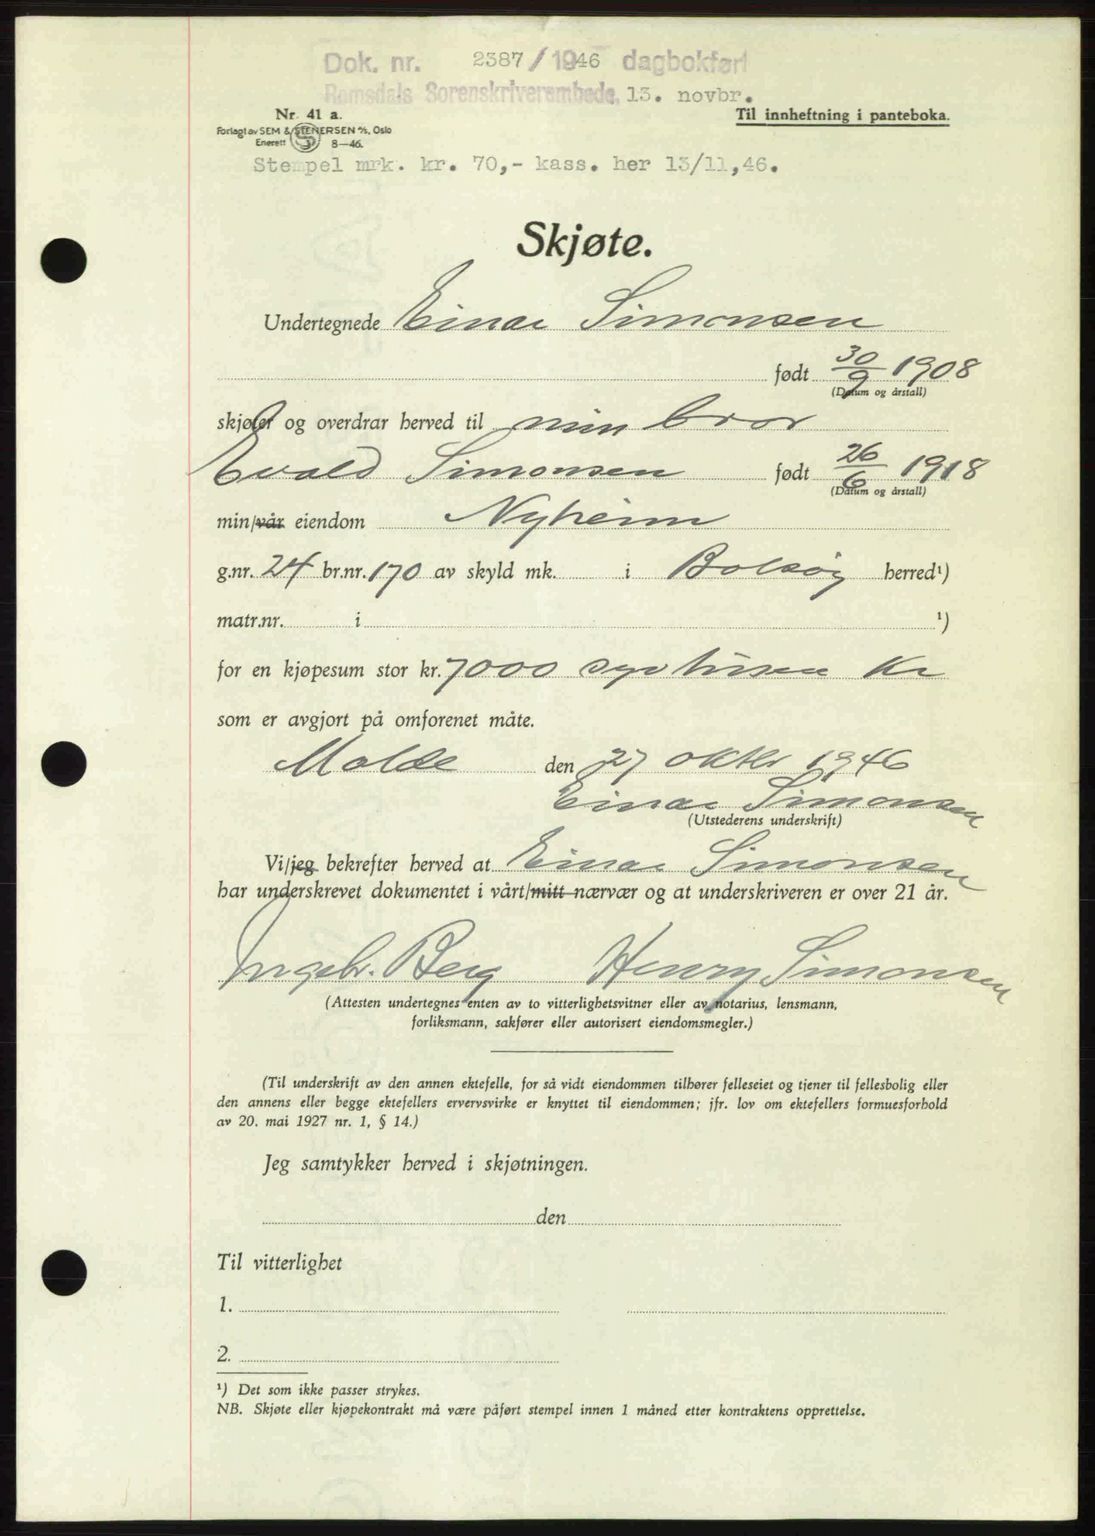 Dok. nr. 2387/1946 dagbokført
Romsdals Sorenskriverembede, 13. novbr.
Nr. 41 a.
Til innheftning i panteboka.
Forlagt av SEM & STENERSEN A/S, Oslo
Enerett 8—46.
Stempel mrk. kr. 70,- kass. her 13/11,46.
Skjøte.
Undertegnede Einar Simonsen
født 30/9 1908
(Datum og årstall)
skjøter og overdrar herved til min bror
Evald Simonsen født 26/6 1918
(Datum og årstall)
min/vår eiendom Nyheim
g.nr. 24 br.nr. 170 av skyld mk. i Bolsøy herred¹)
matr.nr. i ¹)
for en kjøpesum stor kr. 7000 syv tusen Kr
som er avgjort på omforenet måte.
Molde den 27 oktbr 1946
Einar Simonsen
(Utstederens underskrift)
Vi/jeg bekrefter herved at Einar Simonsen
har underskrevet dokumentet i vårt/mitt nærvær og at underskriveren er over 21 år.
Ingebr. Berg Henry Simonsen
(Attesten undertegnes enten av to vitterlighetsvitner eller av notarius, lensmann,
forliksmann, sakfører eller autorisert eiendomsmegler.)
(Til underskrift av den annen ektefelle, for så vidt eiendommen tilhører felleseiet og tjener til fellesbolig eller
den annens eller begge ektefellers ervervsvirke er knyttet til eiendommen; jfr. lov om ektefellers formuesforhold
av 20. mai 1927 nr. 1, § 14.)
Jeg samtykker herved i skjøtningen.
den
Til vitterlighet
1.
2.
¹) Det som ikke passer strykes.
NB. Skjøte eller kjøpekontrakt må være påført stempel innen 1 måned etter kontraktens opprettelse.